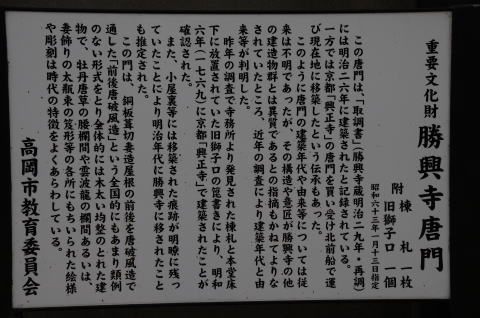 重要文化財　勝興寺唐門
附　棟札　一枚
旧獅子口　一個
昭和六十三年一月十三日指定
この唐門は、「取調書」(勝興寺蔵明治二九年・再調)
には明治二六年に建築されたと記録されている。
一方では京都「興正寺」の唐門を買い受け北前船で運
び現在地に移築したという伝承もあった。
このように唐門の建築年代や由来等については従
来は不明であったが、その構造や意匠が勝興寺の他
の建造物群とは異質であるとの指摘もかねてよりな
されていたところ、近年の調査により建築年代と由
来等が判明した。
昨年の調査で寺務所より発見された棟札と本堂床
下に放置されていた旧獅子口の箆書きにより、明和
六年(一七六九)に京都「興正寺」で建築されたことが
確認された。
また、小屋裏等には移築された痕跡が明瞭に残っ
ていたことにより明治年代に勝興寺に移されたこと
も推定された。
この門は、銅板葺切妻造屋根の前後を唐破風造で
通した「前後唐破風造」という全国的にもあまり類例
のない形式をとり全体的には木太い均整のとれた建
物で、牡丹唐草の腰欄間や雲波龍の欄間あるいは、
妻飾りの太瓶束の笈形等の各所にもちいられた絵様
や彫刻は時代の特徴をよくあらわしている。
高岡市教育委員会